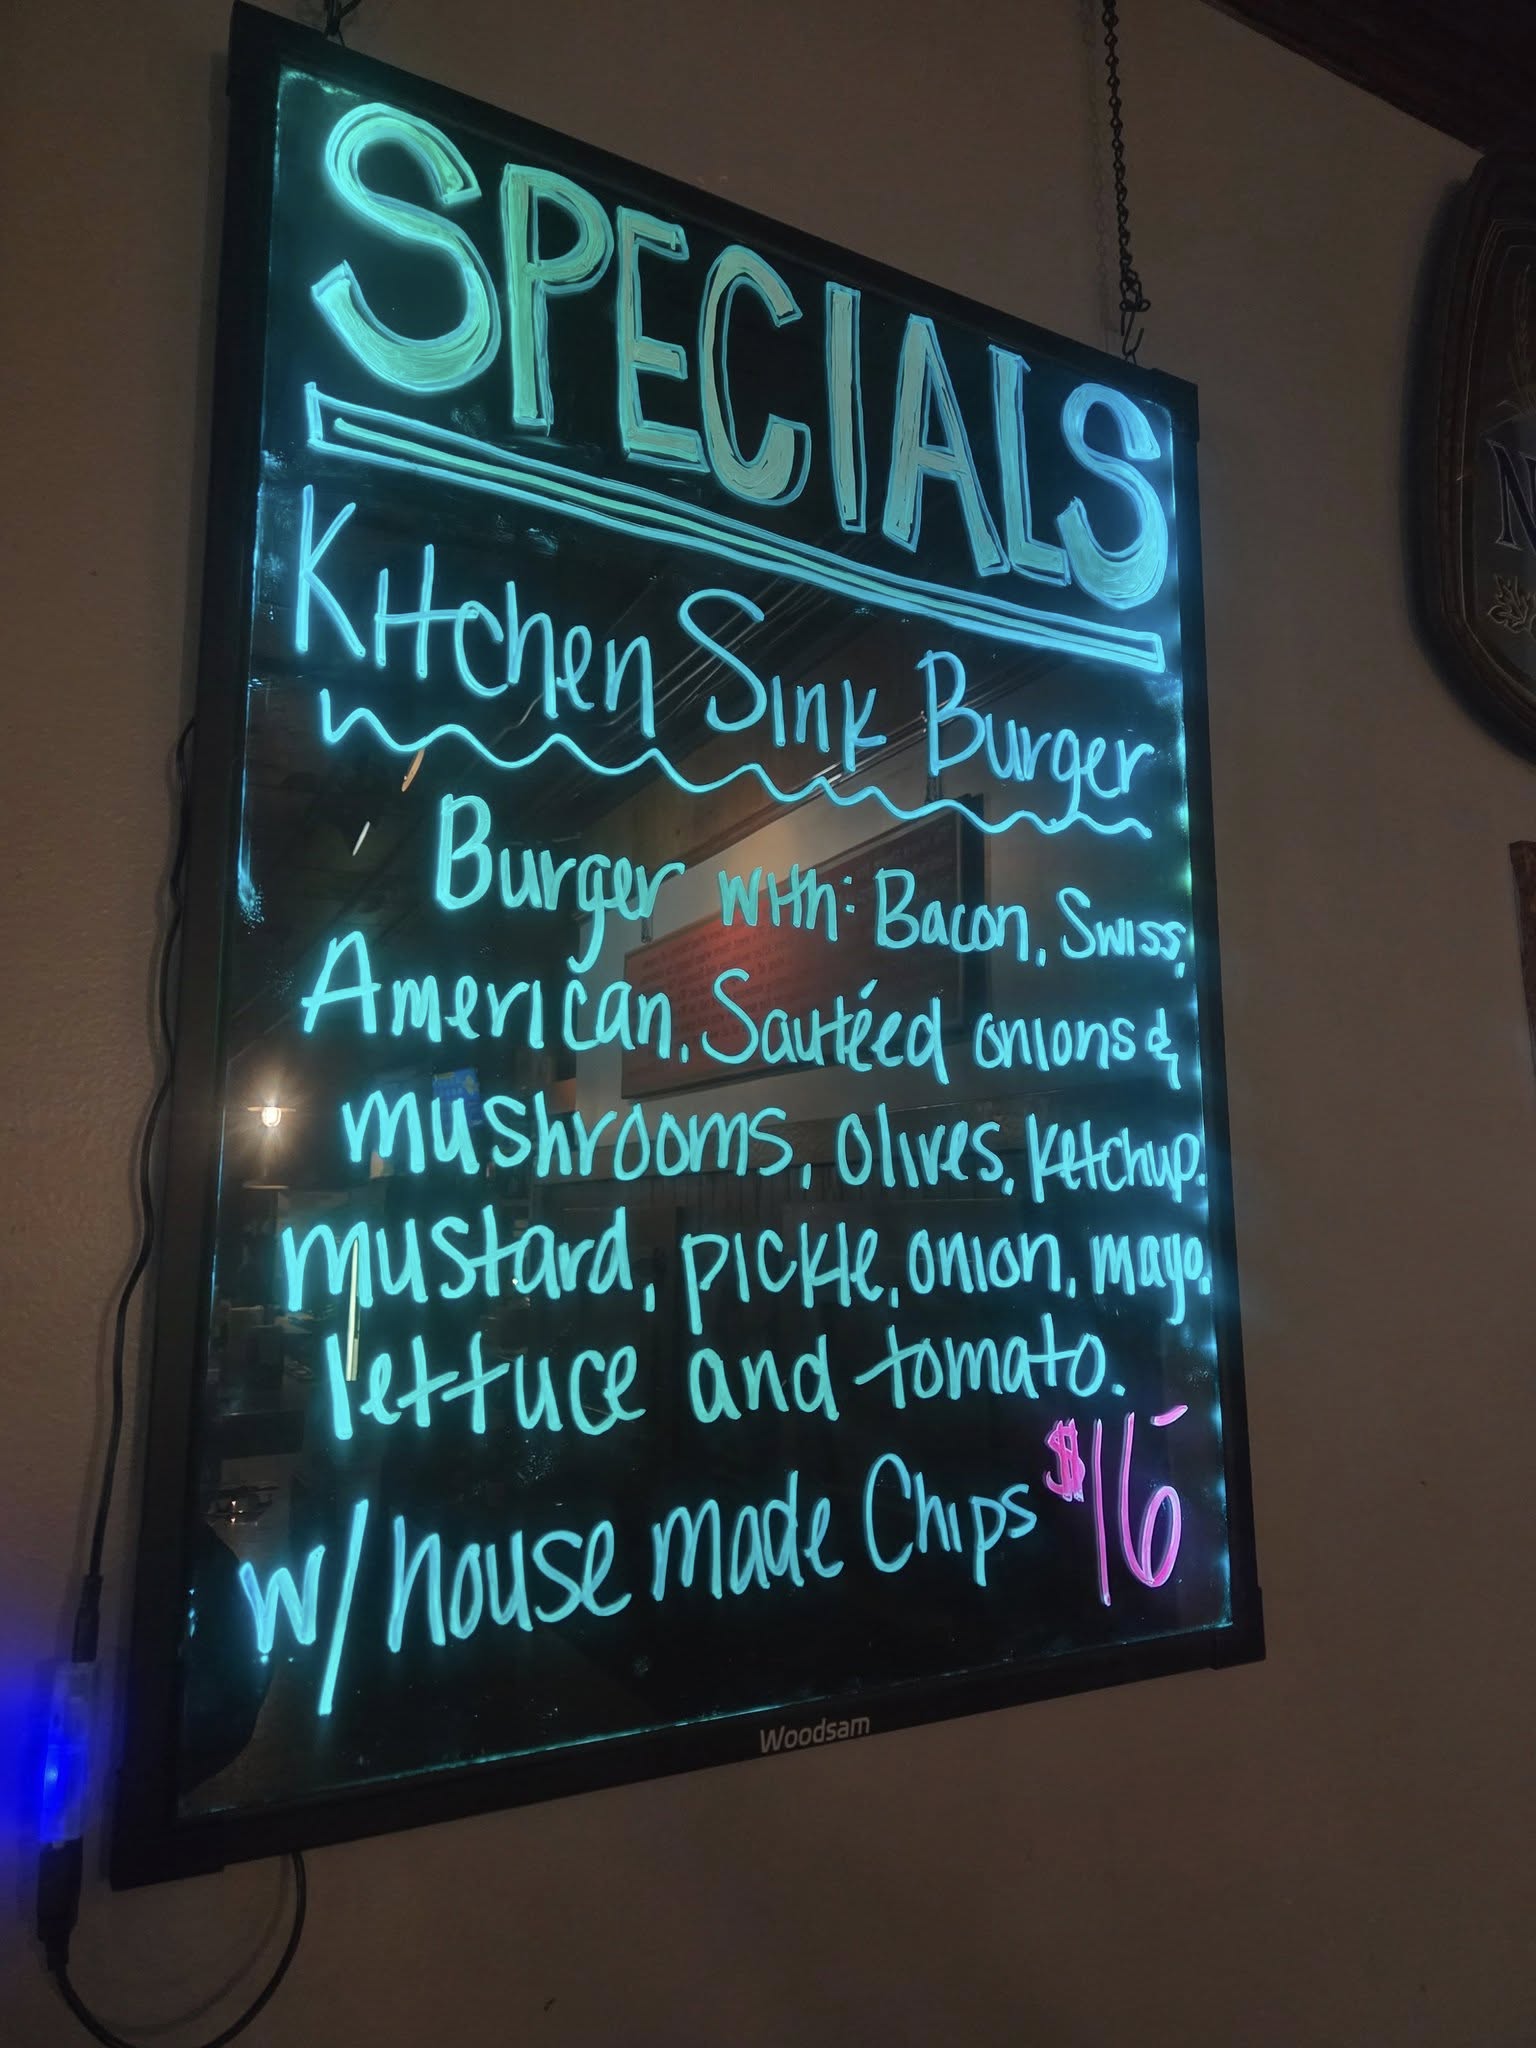 SPECIALS
Kitchen Sink Burger
Burger with: Bacon, Swiss,
American, Sautéed onions &
mushrooms, olives, ketchup,
mustard, pickle, onion, mayo,
lettuce and tomato.
w/ house made Chips $16-
Woodsam